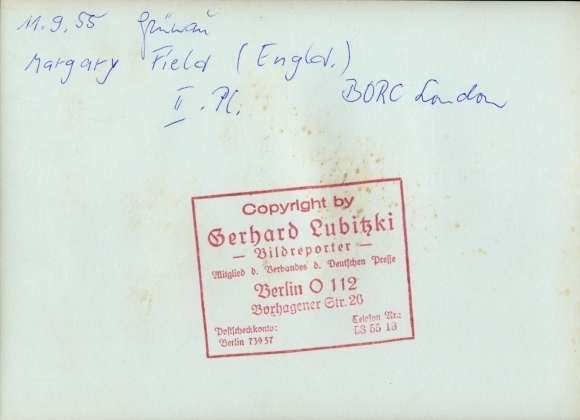 11.9.55 Grünau
Margary Field (Engld.)
II. Pl. BORC London
Copyright by
Gerhard Lubitzki
— Bildreporter —
Mitglied d. Verbandes d. Deutschen Presse
Berlin O 112
Boxhagener Str. 26
Postscheckkonto: Telefon Nr.:
Berlin 739 57 58 55 13